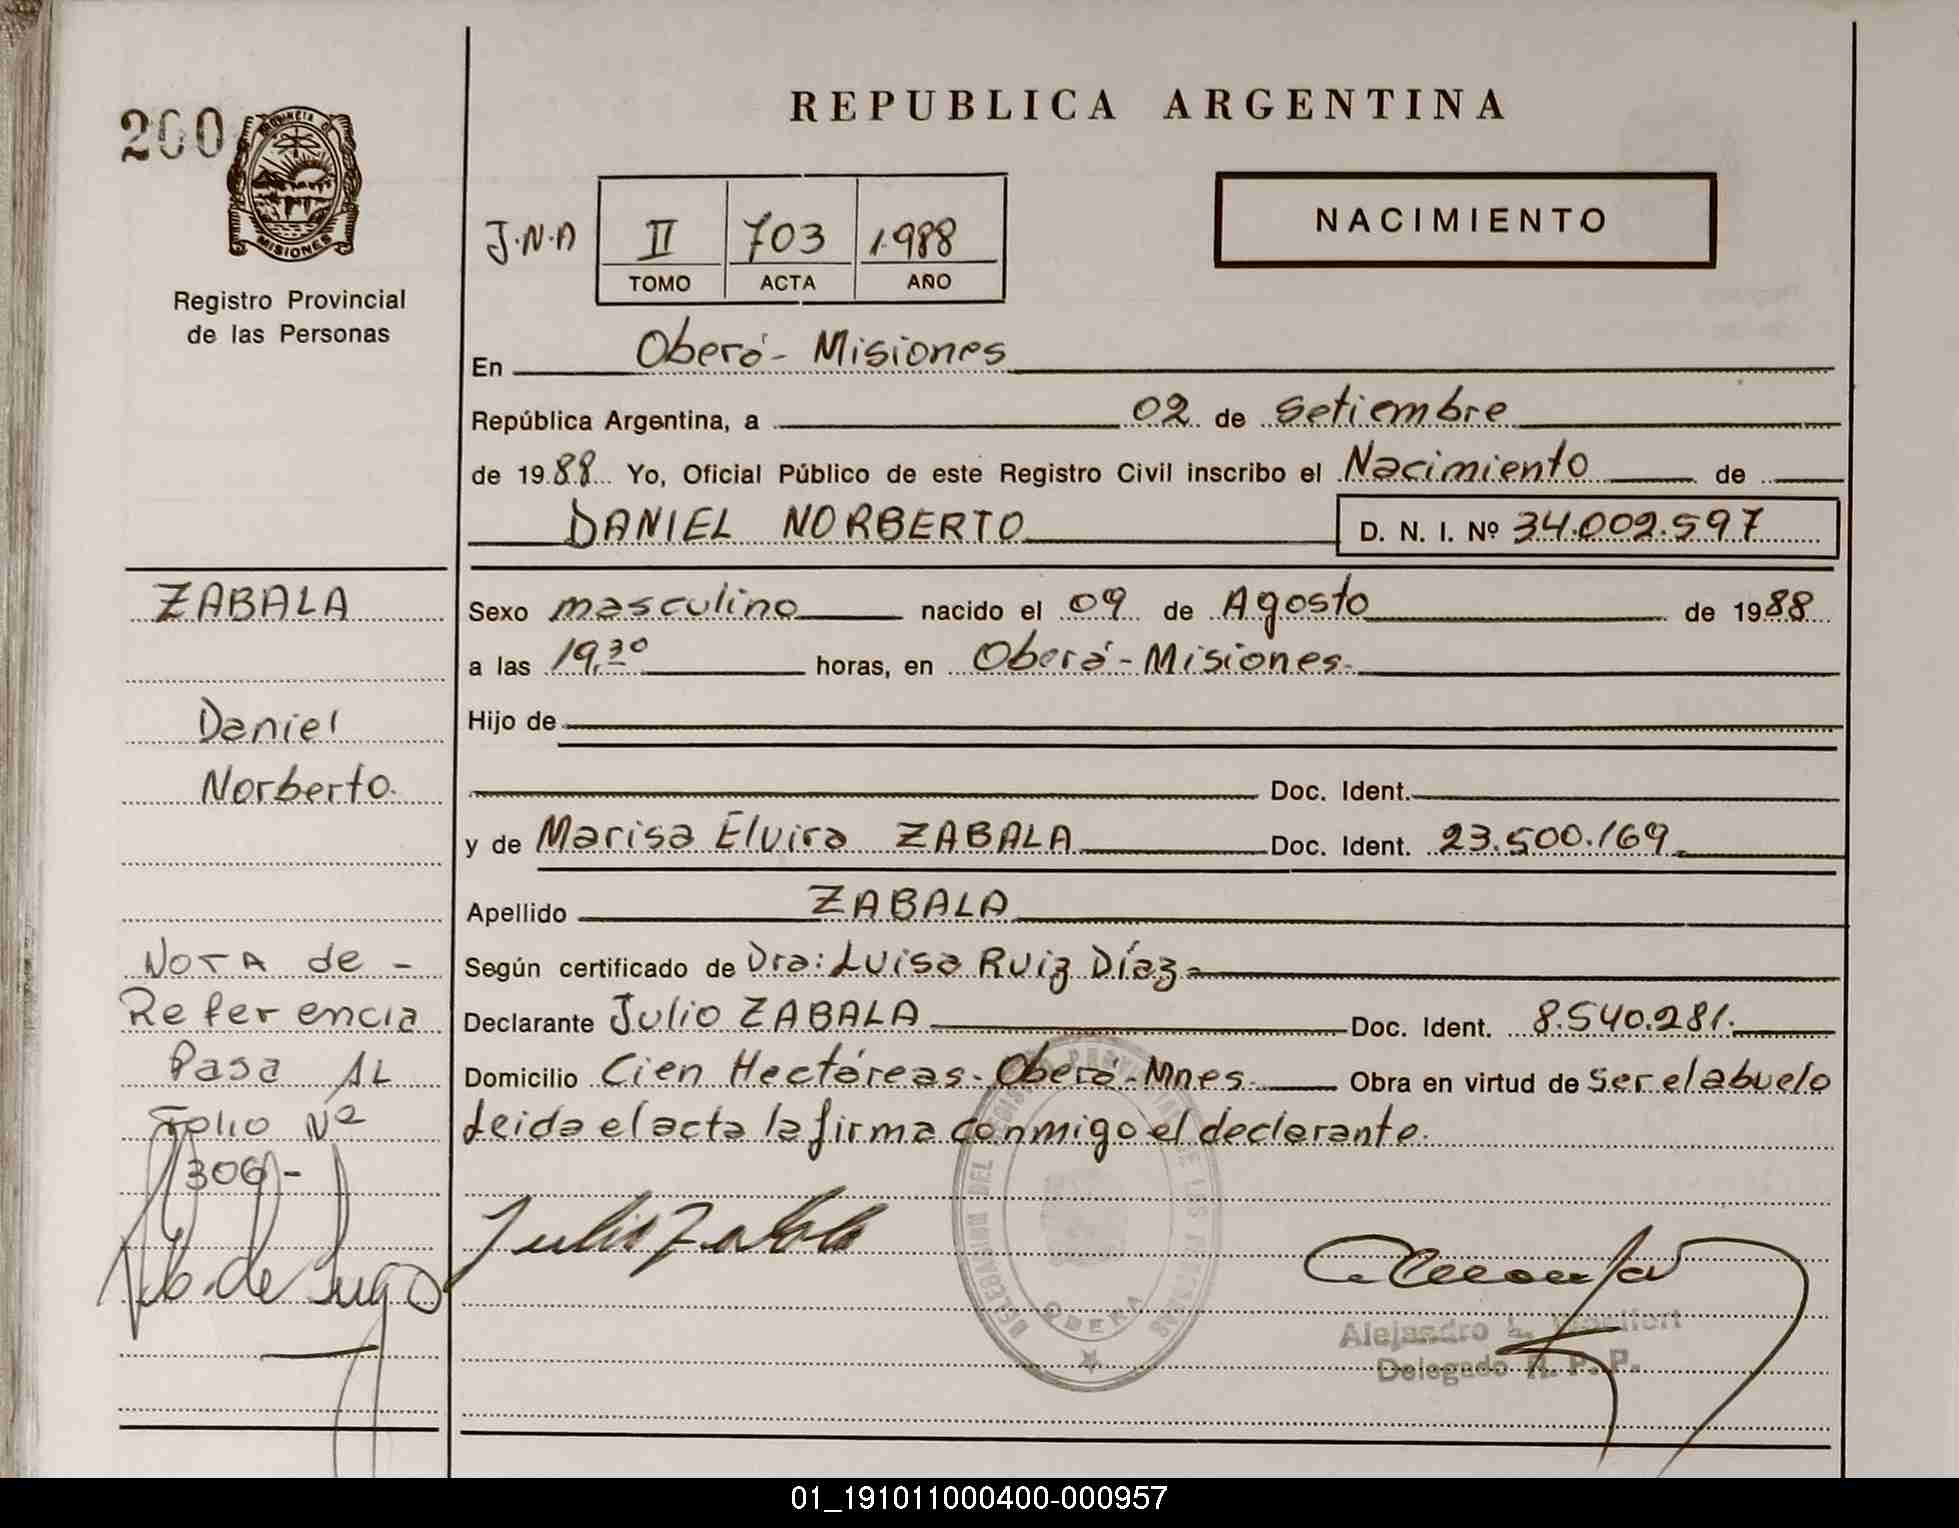 200
PROVINCIA DE
MISIONES
Registro Provincial
de las Personas
REPUBLICA ARGENTINA
J.N.A II 703 1.988
TOMO ACTA AÑO
NACIMIENTO
En Oberá - Misiones
República Argentina, a 02 de Setiembre
de 1988 Yo, Oficial Público de este Registro Civil inscribo el Nacimiento de
DANIEL NORBERTO D. N. I. Nº 34.002.597
ZABALA
Daniel
Norberto.
Sexo masculino nacido el 09 de Agosto de 1988
a las 19,30 horas, en Oberá - Misiones.
Hijo de
Doc. Ident.
y de Marisa Elvira ZABALA Doc. Ident. 23.500.169.
Apellido ZABALA
Según certificado de Dra: Luisa Ruiz Díaz
Declarante Julio ZABALA Doc. Ident. 8.540.281.
Domicilio Cien Hectáreas - Oberá - Mnes. Obra en virtud de ser el abuelo
Leida el acta la firma conmigo el declarante.
NOTA de -
Referencia
Pasa AL
Folio Nº
306 -
Julio Zabala
DELEGACION DEL REGISTRO PROVINCIAL DE LAS PERSONAS
OBERA
Alejandro L.
Delegado R. P. P.
01_191011000400-000957